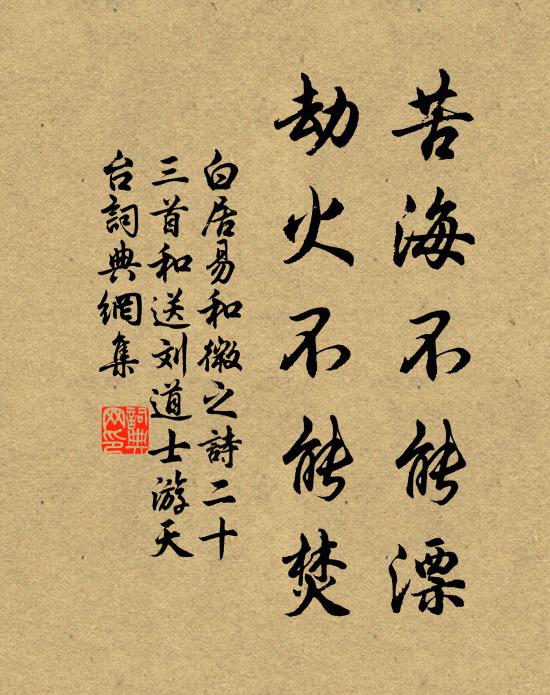 苦海不能漂
劫火不能焚
白居易和微之詩二十
三首和送刘道士游天
台詞典網集
詞典
网印